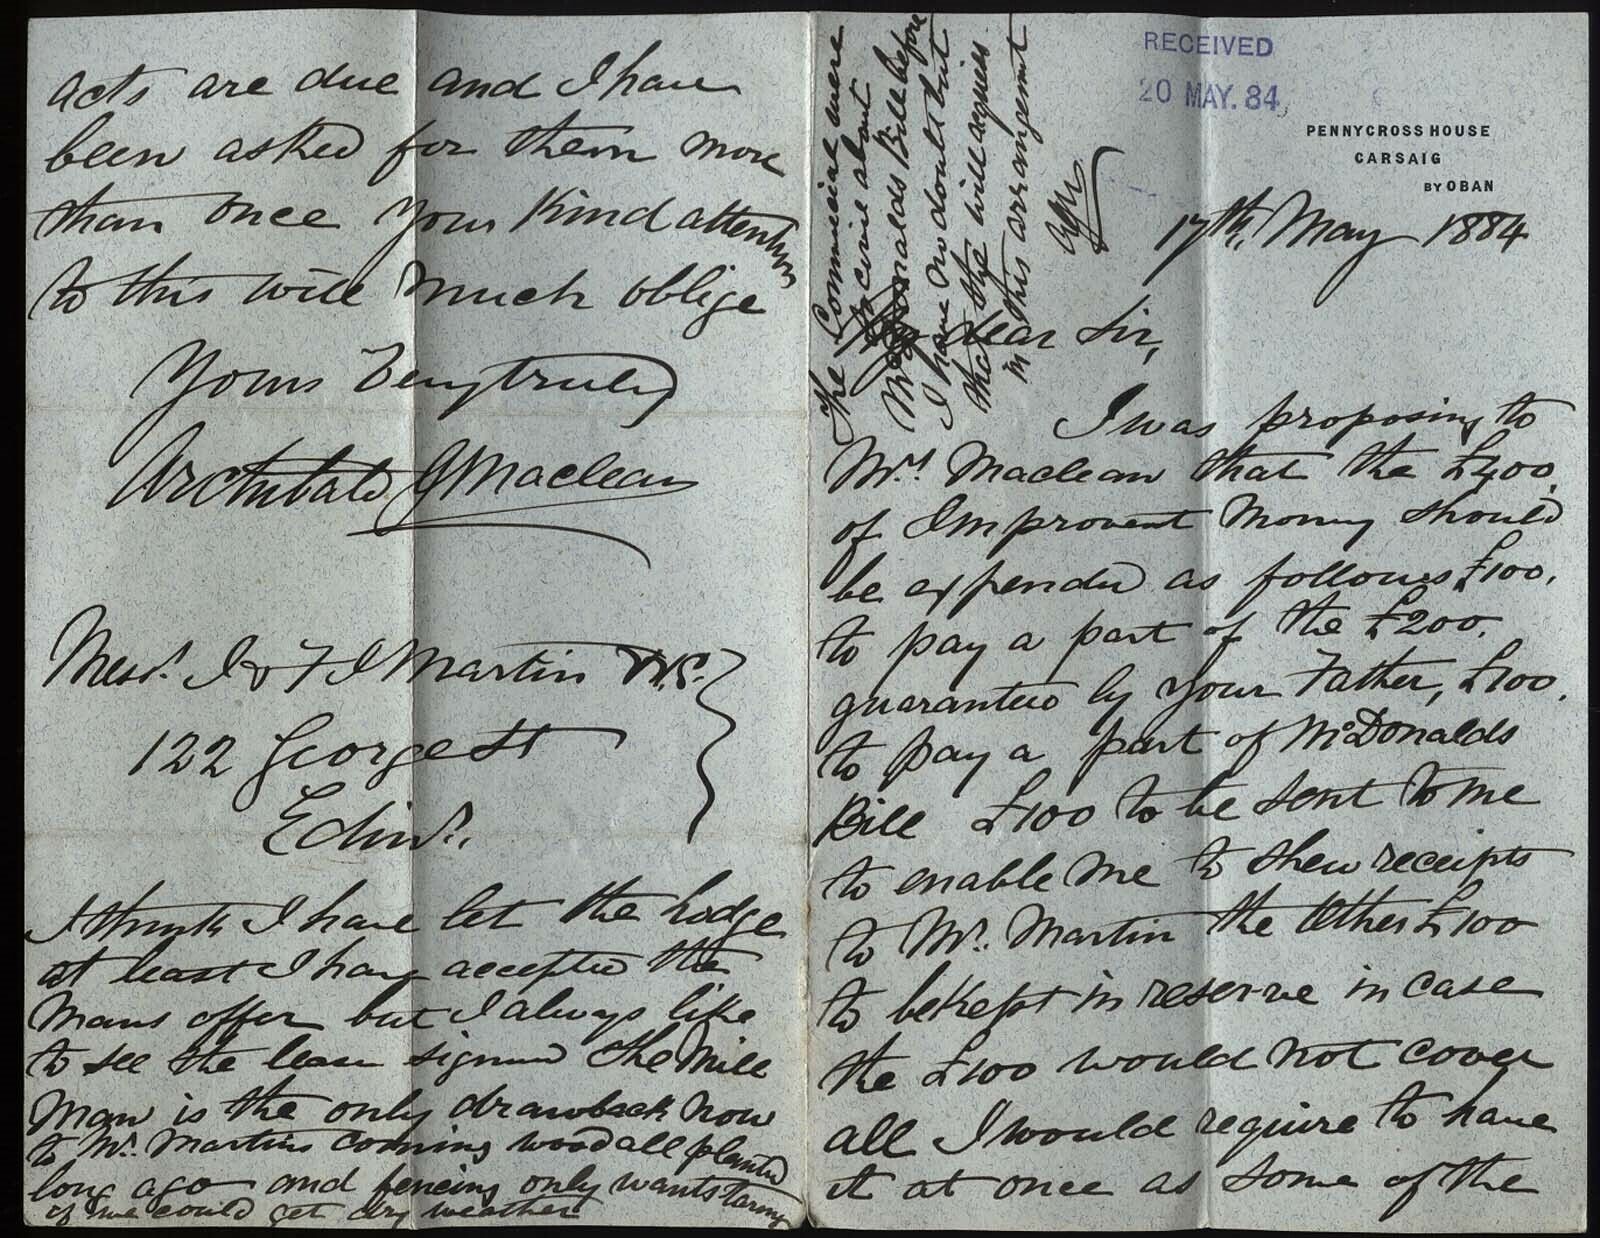 RECEIVED
20 MAY. 84
PENNYCROSS HOUSE
CARSAIG
BY OBAN
17th. May 1884
dear Sir,
I was proposing to
Mrs. Maclean that the £400.
of Improvent Money should
be expended as follows £100.
to pay a part of the £200.
guaranteed by your Father, £100.
to pay a part of McDonalds
Bill £100 to be sent to me
to enable me to shew receipts
to Mr. Martin the Other £100
to be kept in reserve in case
the £100 would not cover
all I would require to have
it at once as some of the
acts are due and I have
been asked for them more
than once your Kind attention
to this will much oblige
Yours Very truly
Archibald J Maclean
Messrs. J & F J Martin W.S.
122 George St
Edinr.
I think I have let the Lodge
at least I have accepted the
Mans offer but I always like
to see the lease signed The Mill
Man is the only drawback now
to Mr. Martins coming wood all planted
long ago and fencing only wants taring
if we could get dry weather
The Commercial were
to about
McDonalds Bill before
I have no doubt but
that they will agree
in this arrangement
AJM